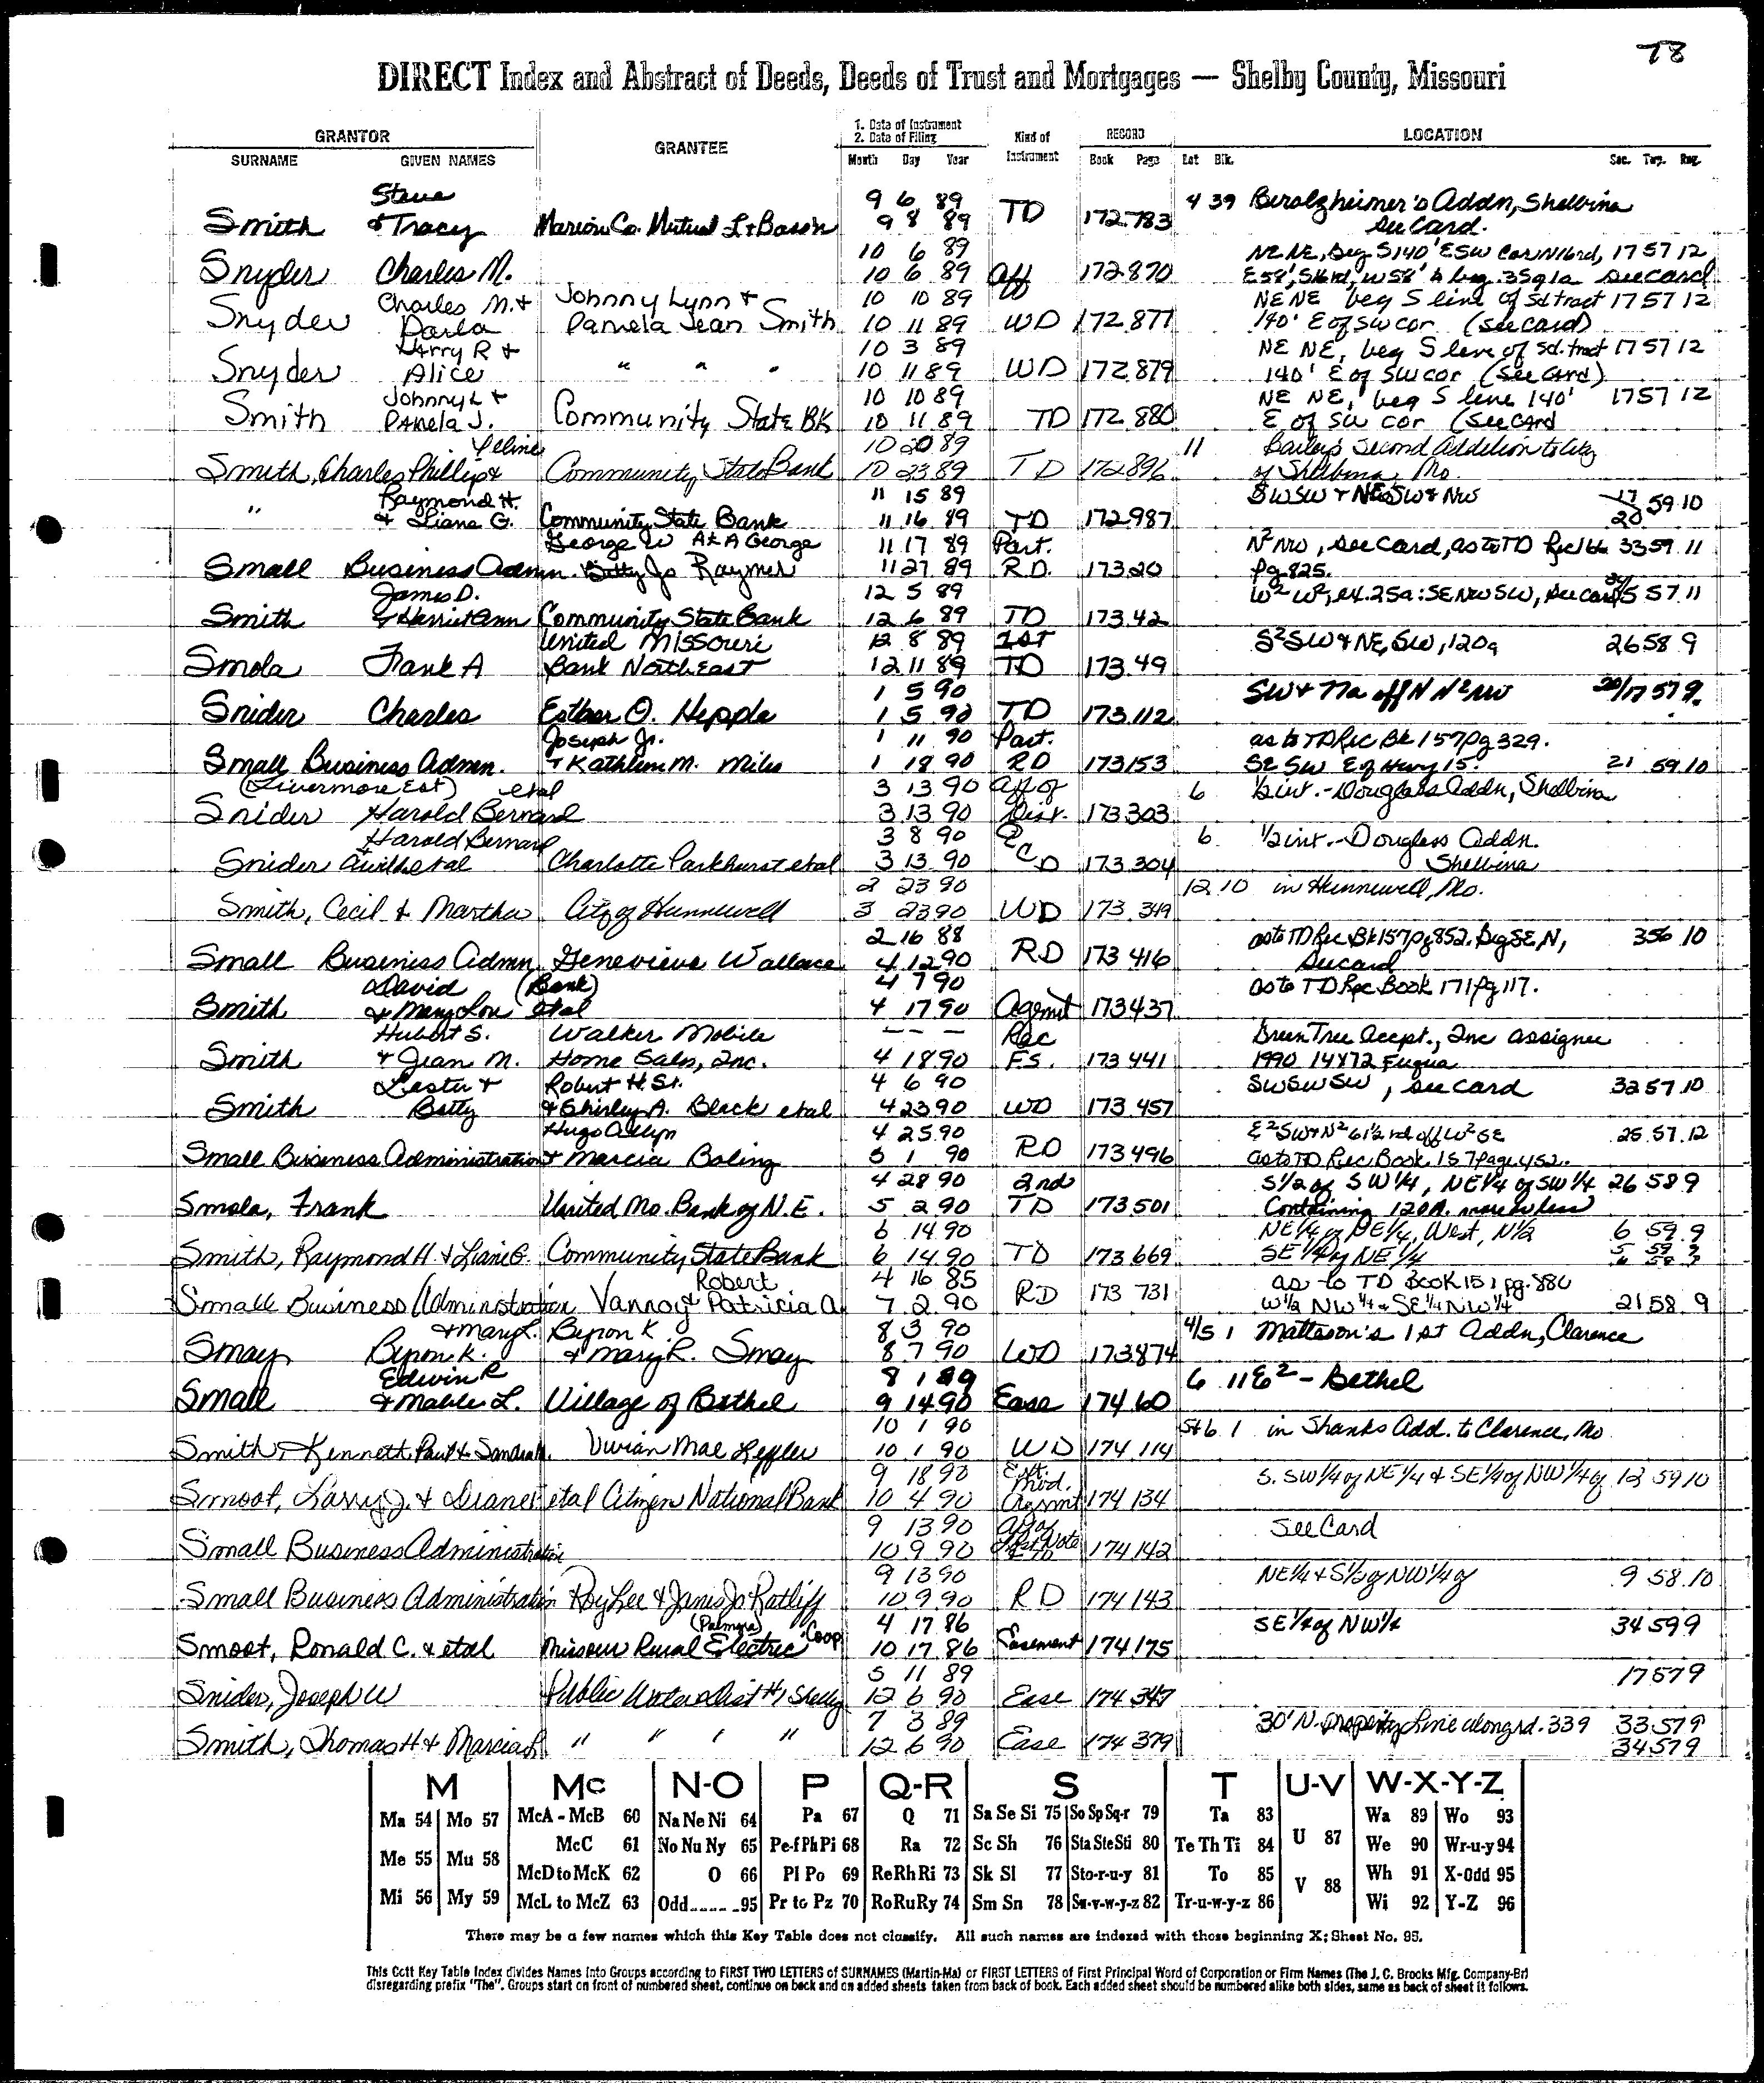 78
DIRECT Index and Abstract of Deeds, Deeds of Trust and Mortgages — Shelby County, Missouri
GRANTOR GRANTEE 1. Date of Instrument 2. Date of Filing Kind of Instrument RECORD LOCATION
SURNAME GIVEN NAMES Month Day Year Book Page Lot Blk. Sec. Twp. Rng.
Steve 9 6 89 4 39 Berolzheimer's Addn, Shelbina
Smith & Tracy Marion Co. Mutual 9 8 89 TD 172 783 see Card.
10 6 89 NE NE, Beg S 140' E SW Cor 17 57 12
Snyder Charles M. 10 6 89 Aff 172 870 E 58', W 58' to beg. see card
Charles M. & Johnny Lynn & 10 10 89 NE NE beg S line of sd tract 17 57 12
Snyder Darla Pamela Jean Smith 10 11 89 WD 172 877 140' E of SW cor (see card)
Harry R & 10 3 89 NE NE, beg S line of sd. tract 17 57 12
Snyder Alice " " " 10 11 89 WD 172 879 140' E of SW cor (see card)
Johnny L & 10 10 89 NE NE, beg S line 140' 17 57 12
Smith Pamela J. Community State BK 10 11 89 TD 172 880 E of SW cor (see card
10 20 89 11 Bailey's Second Addition to City
Smith, Charles Phillip & Community State Bank 10 23 89 TD 172 896 of Shelbina, Mo.
Raymond H. 11 15 89 SWSW & 17
" & Liana G. Community State Bank 11 16 89 TD 172 987 20 59 10
George W AKA George 11 17 89 Part. N² NW, see Card, as to TD Rec 33 59 11
Small Business Admn. Betty Jo Raymer 11 27 89 R.D. 173 20 Pg 825.
James D. 12 5 89 W² W², ex. 25a: SE NW SW, see card 57 11
Smith & Harriet Ann Community State Bank 12 6 89 TD 173 42
United Missouri 12 8 89 1st S² SW & NE, SW, 120a 26 58 9
Smola Frank A Bank NorthEast 12 11 89 TD 173 49
1 5 90 SW & 77a off N N² NW 20/17 57 9
Snider Charles Esther O. Hepple 1 5 90 TD 173 112
Joseph Jr. 1 11 90 Part. as to TD Rec Bk 157 Pg 329.
Small Business Admn. & Kathleen M. Miles 1 18 90 RD 173 153 SE SW E of Hwy 15. 21 59 10
(Livermore Est) etal 3 13 90 Aff of 6 1/2 int.-Douglass Addn, Shelbina
Snider Harold Bernard 3 13 90 Dist. 173 303
Harold Bernard 3 8 90 6 1/2 int.-Douglass Addn.
Snider etal Charlotte Parkhurst etal 3 13 90 173 304 Shelbina
2 23 90 12 10 in Hunnewell, Mo.
Smith, Cecil & Martha City of Hunnewell 3 23 90 WD 173 349
2 16 88 as to TD Rec Bk 157 Pg 852. Beg SE, N, 3 56 10
Small Business Admn Genevieve Wallace 4 12 90 RD 173 416 see card
David (Bank) 4 7 90 as to TD Rec Book 171 Pg 117.
Smith & Mary Lou etal 4 17 90 Agemt 173 437
Hubert S. Walker Mobile — — — Rec Green Tree Accept., Inc assignee
Smith & Jean M. Home Sales, Inc. 4 18 90 F.S. 173 441 1990 14X72 Fuqua
Lester & Robert H. Sr. 4 6 90 SWSWSW, see card 32 57 10
Smith Betty & Shirley A. Black etal 4 23 90 WD 173 457
Hugo Allyn 4 25 90 E² SW & N² 61½ rd off W² SE 25 57 12
Small Business Administration & Marcia Boling 5 1 90 RD 173 496 as to TD Rec Book 157 page 452.
4 28 90 2nd S 1/2 of SW 1/4, NE 1/4 of SW 1/4 26 58 9
Smola, Frank United Mo. Bank of N.E. 5 2 90 TD 173 501 Containing 120A. more or less
6 14 90 NE 1/4 of NE 1/4, West, N 1/2 6 59 9
Smith, Raymond H & Liana G. Community State Bank 6 14 90 TD 173 669 SE 1/4 of NE 1/4 5 59 9
Robert 4 16 85 as to TD Book 151 pg. 886
Small Business Administration Vannoy & Patricia A 7 2 90 RD 173 731 W 1/2 NW 1/4 & SE 1/4 NW 1/4 21 58 9
& Mary L. Byron K 8 3 90 4/5 1 Matteson's 1st Addn, Clarence
Smay Byron K. & Mary L. Smay 8 7 90 WD 173 874
Edwin R 8 1 89 6 11 E² - Bethel
Small & Mable L. Village of Bethel 9 14 90 Ease 174 60
10 1 90 5&6 1 in Shanks Add. to Clarence, Mo
Smith, Kenneth Paul & Vivian Mae Leffler 10 1 90 WD 174 114
9 18 90 Ext. Mod. S. SW 1/4 of NE 1/4 & SE 1/4 of NW 1/4 of 12 59 10
Smoot, Larry J. & Diane etal Citizen National Bank 10 4 90 Agemnt 174 134
9 13 90 Aff of See Card
Small Business Administration 10 9 90 Note 174 142
9 13 90 NE 1/4 & S 1/2 of NW 1/4 of 9 58 10
Small Business Administration Roy Lee & Janis Jo Ratliff 10 9 90 RD 174 143
(Palmyra) 4 17 86 SE 1/4 of NW 1/4 34 59 9
Smoot, Ronald C. & etal Missouri Rural Electric Coop 10 17 86 Easement 174 175
5 11 89 17 57 9
Snider, Joseph W Public Water Dist #1 Shelby 12 6 90 Ease 174 347
7 3 89 30' N. property line along rd. 339 33 57 9
Smith, Thomas H & Marcia L " " " " 12 6 90 Ease 174 379 34 57 9
M Mc N-O P Q-R S T U-V W-X-Y-Z
Ma 54 Mo 57 McA - McB 60 Na Ne Ni 64 Pa 67 Q 71 Sa Se Si 75 So Sp Sq-r 79 Ta 83 U 87 Wa 89 Wo 93
Me 55 Mu 58 McC 61 No Nu Ny 65 Pe-f Ph Pi 68 Ra 72 Sc Sh 76 Sta Ste Sti 80 Te Th Ti 84 We 90 Wr-u-y 94
McD to McK 62 O 66 Pl Po 69 Re Rh Ri 73 Sk Sl 77 Sto-r-u-y 81 To 85 V 88 Wh 91 X-Odd 95
Mi 56 My 59 McL to McZ 63 Odd 95 Pr to Pz 70 Ro Ru Ry 74 Sm Sn 78 Su-v-w-y-z 82 Tr-u-w-y-z 86 Wi 92 Y-Z 96
There may be a few names which this Key Table does not classify. All such names are indexed with those beginning X; Sheet No. 95.
This Cott Key Table Index divides Names into Groups according to FIRST TWO LETTERS of SURNAMES (Martin-Ma) or FIRST LETTERS of First Principal Word of Corporation or Firm Names (The J. C. Brooks Mfg. Company-Br)
disregarding prefix "The". Groups start on front of numbered sheet, continue on back and on added sheets taken from back of book. Each added sheet should be numbered alike both sides, same as back of sheet it follows.